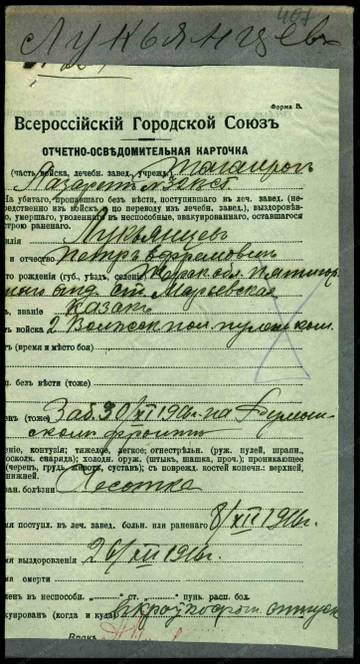 407
Лукьянцев
Форма В.
Всероссійскій Городской Союзъ
ОТЧЕТНО-ОСВѢДОМИТЕЛЬНАЯ КАРТОЧКА
(часть войска, лечебн. завед., учрежд.) Таганрогъ
Лазаретъ №
На убитаго, пропавшаго безъ вѣсти, поступившаго въ леч. завед. (не-
средственно изъ войскъ или по переводу из лечебн. завед.), выздоровѣв-
умершаго, уволеннаго въ неспособные, эвакуированнаго, оставшагося
строю раненаго.
илія Лукьянцев
и отчество Петръ Ефремовичъ
то рожденія (губ., уѣзд., селеніе) Терск. обл. Пятигор-
ст. Марьевская
званіе Казакъ
войска 2
(время и мѣсто боя)
безъ вѣсти (тоже)
(тоже) Заб. 30/XI 1916 г. на Румын-
скомъ фронтѣ
еніе, контузія; тяжелое, легкое; огнестрѣльн. (руж. пулей, шрапн.,
осколк. снаряда); холодн. оруж. (штыкъ, шашка, проч.); проникающее
(черепъ, грудь, животъ, суставъ); съ поврежд. костей конечн.: верхней,
нижней.
болѣзни Чесотка
поступл. въ леч. завед. больн. или раненаго 8/XII 1916 г.
выздоровленія 26/XII 1916 г.
смерти
въ неспособн. „ “ ст. „ “ пунк. расп. бол.
(когда и куда) отпуск
Врачъ